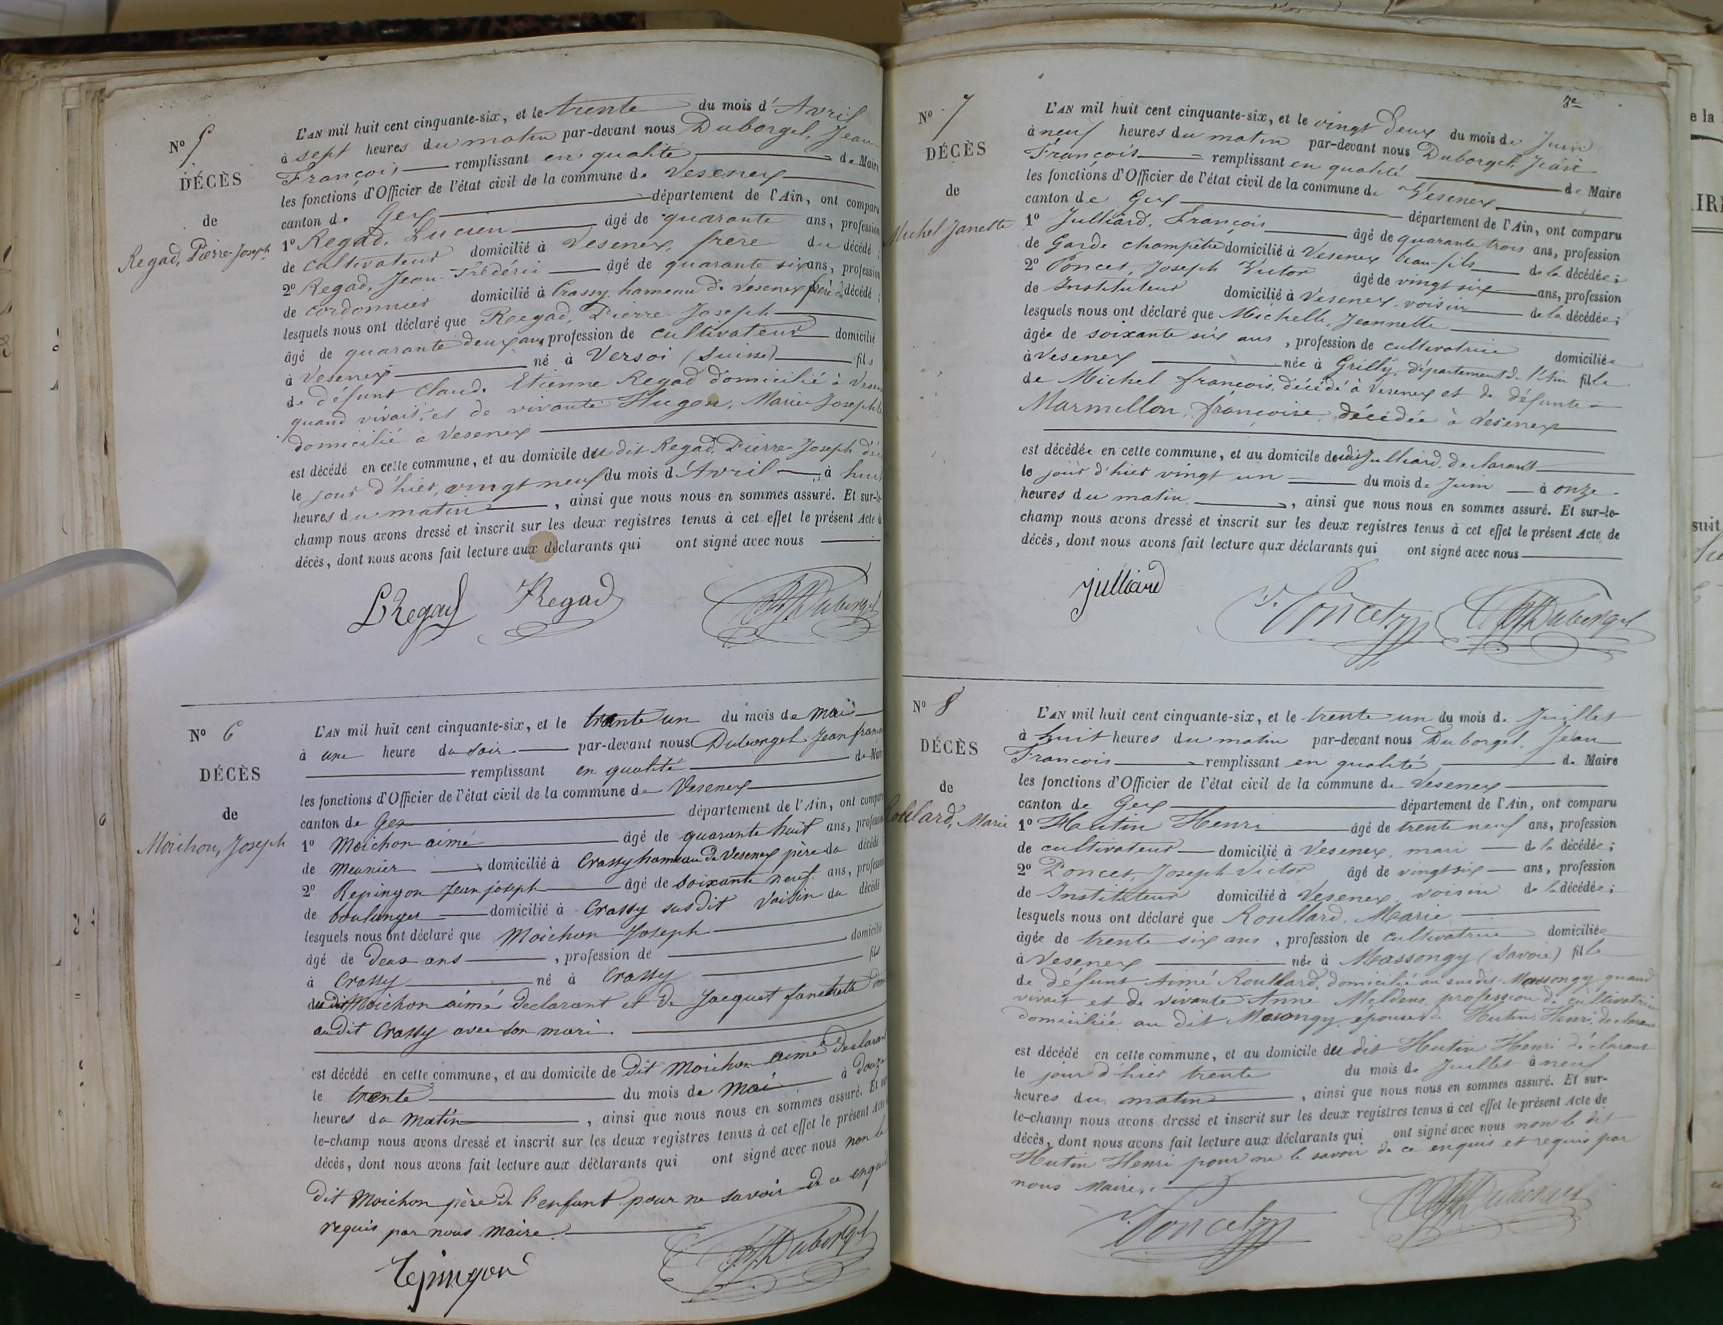 N° 5
DÉCÈS
de
Regad, Pierre-Joseph
L'AN mil huit cent cinquante-six, et le trente du mois d'Avril
à sept heures du matin par-devant nous Duborgel, Jean
François remplissant en qualité de Maire
les fonctions d'Officier de l'état civil de la commune de Vesenex
canton de Gex département de l'Ain, ont comparu
1° Regad, Lucien âgé de quarante ans, profession
de cultivateur domicilié à Vesenex, frère du décédé;
2° Regad, Jean-Frédéric âgé de quarante six ans, profession
de cordonnier domicilié à Crassy hameau de Vesenex frère du décédé;
lesquels nous ont déclaré que Regad, Pierre Joseph
âgé de quarante deux ans, profession de cultivateur domicilié
à Vesenex né à Versoi (Suisse) fils
de défunt Claude Etienne Regad domicilié à Vesenex
quand vivait, et de vivante Hugon, Marie Joseph
domicilié à Vesenex
est décédé en cette commune, et au domicile du dit Regad, Pierre-Joseph
le jour d'hier, vingt neuf du mois d'Avril à huit
heures du matin, ainsi que nous nous en sommes assuré. Et sur-le-
champ nous avons dressé et inscrit sur les deux registres tenus à cet effet le présent Acte de
décès, dont nous avons fait lecture aux déclarants qui ont signé avec nous
L Regad JRegad JFDuborgel
N° 6
DÉCÈS
de
Moichon, Joseph
L'AN mil huit cent cinquante-six, et le trente un du mois de mai
à une heure du soir par-devant nous Duborgel Jean françois
remplissant en qualité de Maire
les fonctions d'Officier de l'état civil de la commune de Vesenex
canton de Gex département de l'Ain, ont comparu
1° Moichon aimé âgé de quarante huit ans, profession
de meunier domicilié à Crassy hameau de Vesenex père du décédé
2° Repingon Jean joseph âgé de soixante neuf ans, profession
de boulanger domicilié à Crassy susdit voisin du décédé
lesquels nous ont déclaré que Moichon Joseph
âgé de deux ans, profession de domicilié
à Crassy né à Crassy fils
du dit Moichon aimé declarant et de Jacquet fanchette
audit Crassy avec son mari.
est décédé en cette commune, et au domicile de dit Moichon aimé declarant
le trente du mois de Mai à douze
heures du matin, ainsi que nous nous en sommes assuré. Et sur-
le-champ nous avons dressé et inscrit sur les deux registres tenus à cet effet le présent Acte de
décès, dont nous avons fait lecture aux déclarants qui ont signé avec nous non le
dit Moichon père de l'enfant pour ne savoir de ce enquis
requis par nous Maire.
Repingon JFDuborgel
7e
N° 7
DÉCÈS
de
Michel Janette
L'AN mil huit cent cinquante-six, et le vingt deux du mois de Juin
à neuf heures du matin par-devant nous Duborgel, Jean
François remplissant en qualité de Maire
les fonctions d'Officier de l'état civil de la commune de Vesenex
canton de Gex département de l'Ain, ont comparu
1° Julliard, François âgé de quarante trois ans, profession
de Garde champêtre domicilié à Vesenex beau-fils de la décédée;
2° Poncet, Joseph Victor âgé de vingt six ans, profession
de Instituteur domicilié à Vesenex voisin de la décédée;
lesquels nous ont déclaré que Michelle, Jeannette
âgée de soixante six ans, profession de cultivatrice domiciliée
à Vesenex née à Grilly, département de l'Ain fille
de Michel françois, décédé à Vesenex et de défunte
Marmillon, françoise décédée à Vesenex
est décédée en cette commune, et au domicile du dit Julliard declarant
le jour d'hier vingt un du mois de Juin à onze
heures du matin, ainsi que nous nous en sommes assuré. Et sur-le-
champ nous avons dressé et inscrit sur les deux registres tenus à cet effet le présent Acte de
décès, dont nous avons fait lecture aux déclarants qui ont signé avec nous
julliard V. Poncet JFDuborgel
N° 8
DÉCÈS
de
Roullard, Marie
L'AN mil huit cent cinquante-six, et le trente un du mois de Juillet
à huit heures du matin par-devant nous Duborgel, Jean
François remplissant en qualité de Maire
les fonctions d'Officier de l'état civil de la commune de Vesenex
canton de Gex département de l'Ain, ont comparu
1° Hutin Henri âgé de trente neuf ans, profession
de cultivateur domicilié à Vesenex, mari de la décédée;
2° Poncet, Joseph Victor âgé de vingt six ans, profession
de Instituteur domicilié à Vesenex, voisin de la décédée;
lesquels nous ont déclaré que Roullard, Marie
âgée de trente six ans, profession de cultivatrice domiciliée
à Vesenex née à Massongy (Savoie) fille
de défunt Aimé Roullard, domicilié au susdit Massongy quand
vivait et de vivante Anne profession de cultivatrice
domiciliée au dit Massongy, épouse de Hutin Henri, declarant
est décédé en cette commune, et au domicile du dit Hutin Henri déclarant
le jour d'hier trente du mois de Juillet à neuf
heures du matin, ainsi que nous nous en sommes assuré. Et sur-
le-champ nous avons dressé et inscrit sur les deux registres tenus à cet effet le présent Acte de
décès, dont nous avons fait lecture aux déclarants qui ont signé avec nous non le dit
Hutin Henri pour ne le savoir de ce enquis et requis par
nous Maire.
V. Poncet JFDuborgel